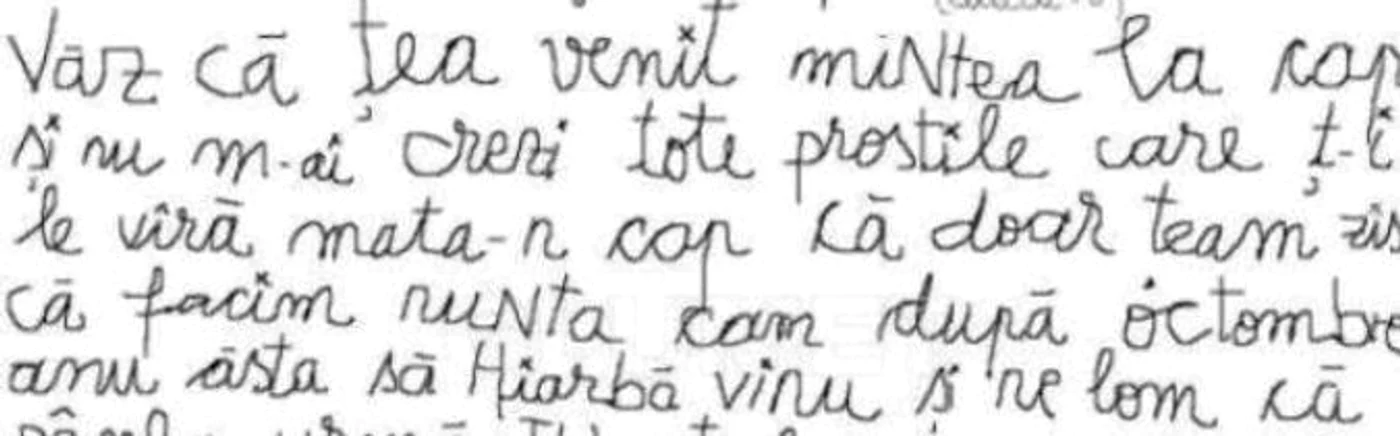 Văz că țea venit miNtea la cap
și nu m-ai crezi tote prostile care ț-i
le vîră mata-n cap că doar team zis
că facim nuNta cam după octombre
anu ăsta să Hiarbă vinu și ne lom că